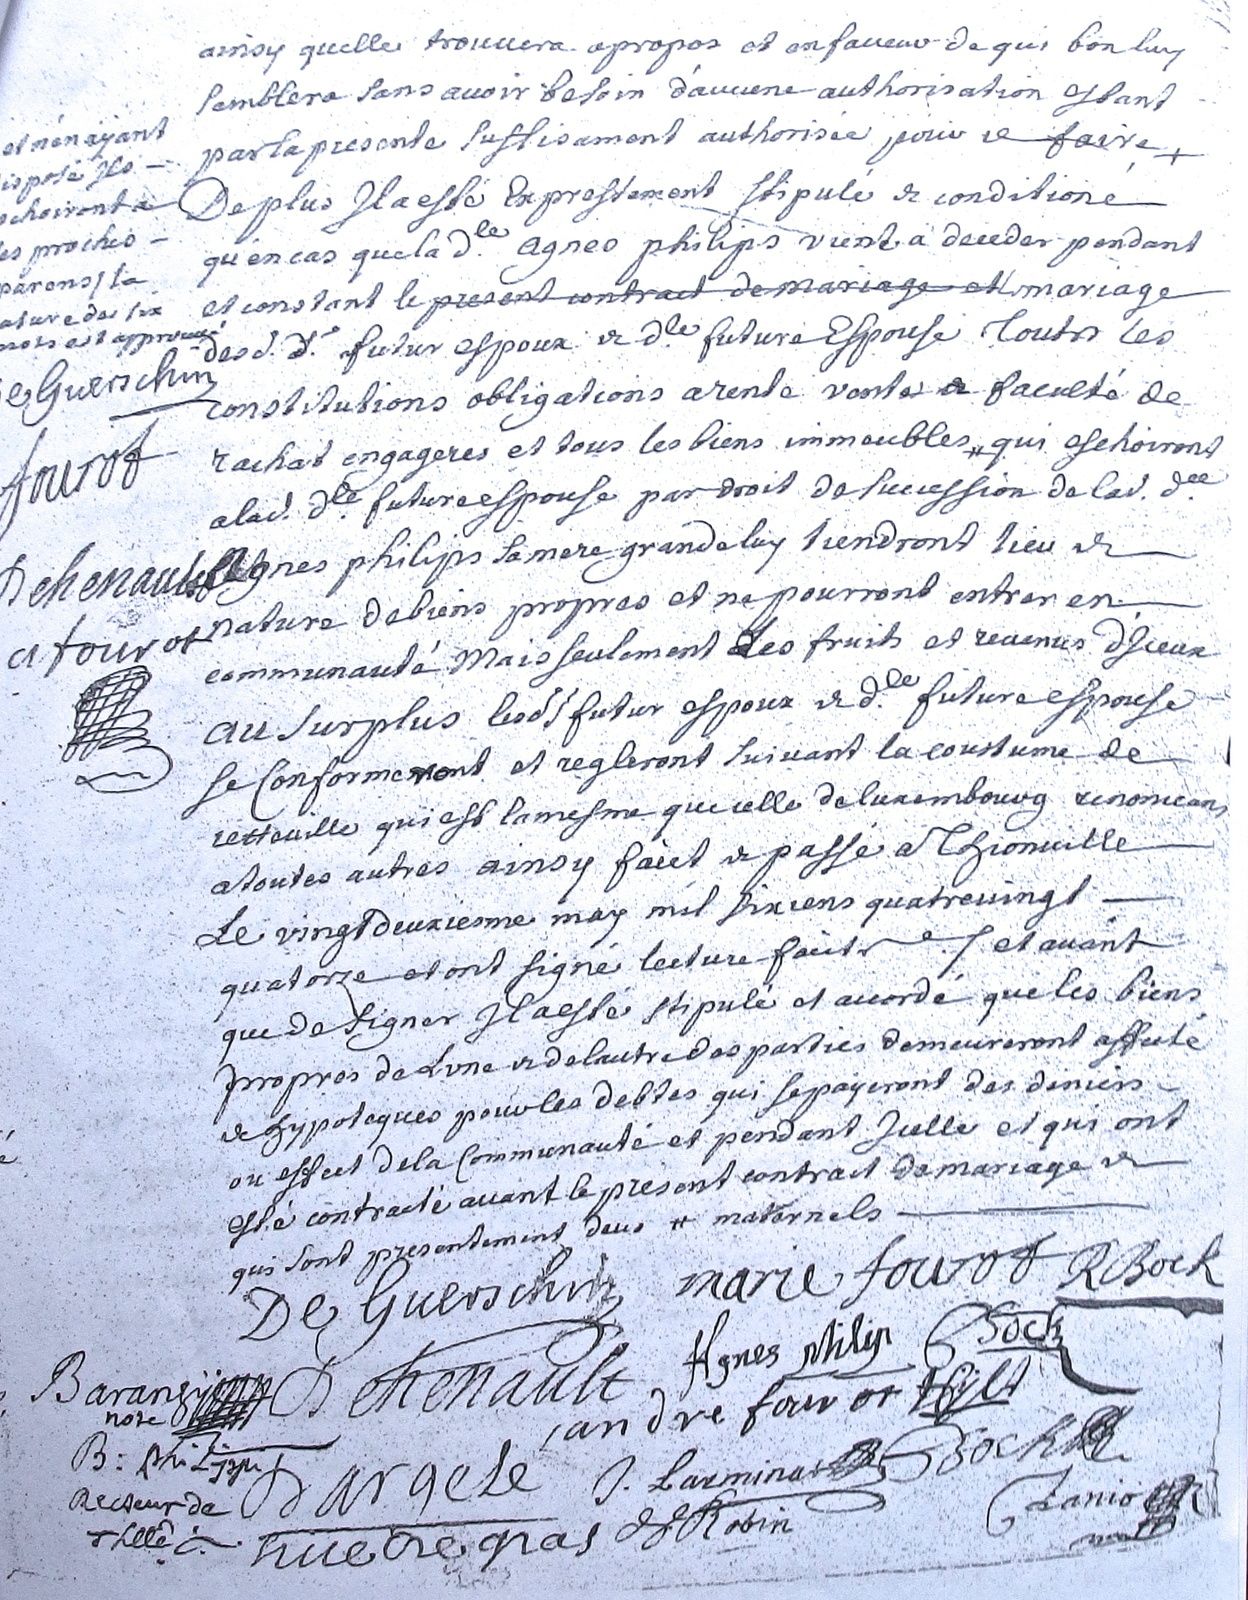 ainsy quelle trouvera apropos et enfaveur de qui bon luy
semblera sans avoir besoin d'aucune authorisation estant
par la presente suffisament authorisée pour ce faire +
De plus Il a esté Expressement stipulé & conditioné
qu'en cas que la d.le Agnes philips vient a deceder pendant
et constant le present contract de mariage et mariage
des d. s.r futur espoux & d.le future Espouse Toutes les
constitutions obligations a rente vente a faculté de
rachat engageres et tous les biens immeubles # qui escheoiront
a lad. d.le future espouse par droit de succession de lad. d.lle
Agnes philips sa mere grande luy tiendront lieu &
nature de biens propres et ne pourront entrer en
communauté Mais seulement Les fruits et revenus d'Iceux
au surplus lesd. s.r futur espoux & d.le future espouse
se Conformeront et regleront suivant la coustume de
cette ville qui est la mesme que celle de luxembourg renonceans
a toutes autres ainsy faict & passé a Thionville
Le vingt deuxiesme may mil six cens quatre vingt
quatorze et ont signé lecture faicte / et avant
que de signer Il a esté stipulé et accordé que les biens
propres de L'une & de l'autre des parties demeureront affecté
& hypoteques pour les debtes qui se payeront des deniers
ou effect de la Communauté et pendant Icelle et qui ont
esté contracté avant le present contract de mariage &
qui sont presentement deus # maternels
et n'en ayant
dispose Ils
echeoiront a
les proches
parens / la
rature des six
mots est approuvé
De Guerschin
fourot
Dehenault
a fourot
De Guerschin marie fourot RBock
Agnes philip Bock
Baranzy Dehenault
note
andre fourot
B: philippi
Dargele J. Larmina Bock
Recteur de
hue De gras Robin Lanio